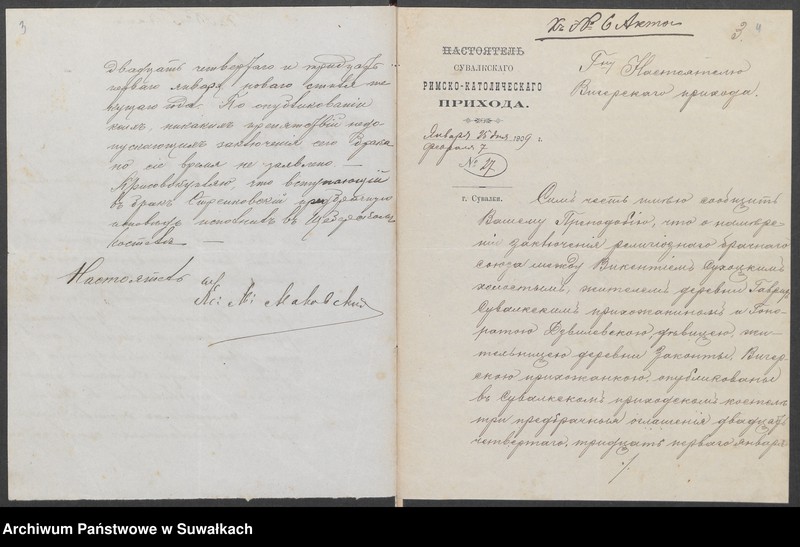 3
двадцать четвертаго и тридцать
перваго января новаго стиля те
кущаго года. По опубликовании
каких, никаких препятствій недо
пускающих заключения сего брака
по сіе время не заявлено —
Присовокупляю, что вступающий
в брак предбрачную
исповедь исполнил в
костеле —
Настоятель
Маковский
К № 6 Акта
3 4
НАСТОЯТЕЛЬ
СУВАЛКСКАГО
РИМСКО-КАТОЛИЧЕСКАГО
ПРИХОДА.
Января 25 дня 1909 г.
Февраля 7
№ 27
г. Сувалки.
Гну Настоятелю
Вигерскаго прихода.
Сим честь имею сообщить
Вашему Преподобію, что о намѣре
нии заключения религіознаго брачнаго
союза между Викентіем Сухоцким
холостым, жителем деревни
Сувалкским прихожанином и Гоно
ратою девицею, жи
тельницею деревни Вигер
скою прихожанкою, опубликованы
в Сувалкском приходском костеле
три предбрачныя оглашения двадцать
четвертаго, тридцать перваго января
Archiwum Państwowe w Suwałkach